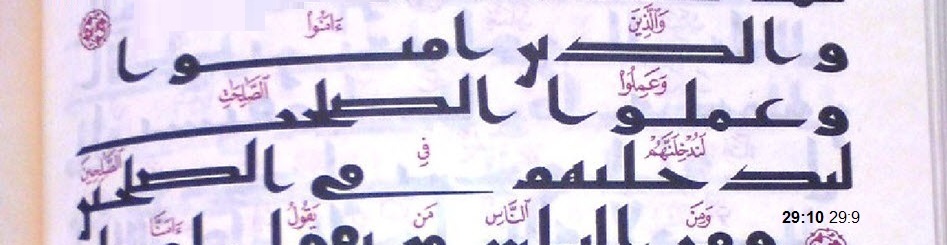 وَالَّذِينَ ءَامَنُوا
والذين امنوا
وَعَمِلُوا الصَّالِحَاتِ
وعملوا الصلحت
لَنُدْخِلَنَّهُمْ فِي الصَّالِحِينَ
لندخلنهم في الصلحين
وَمِنَ النَّاسِ مَن يَقُولُ ءَامَنَّا
ومن الناس من يقول امنا
29:10 29:9